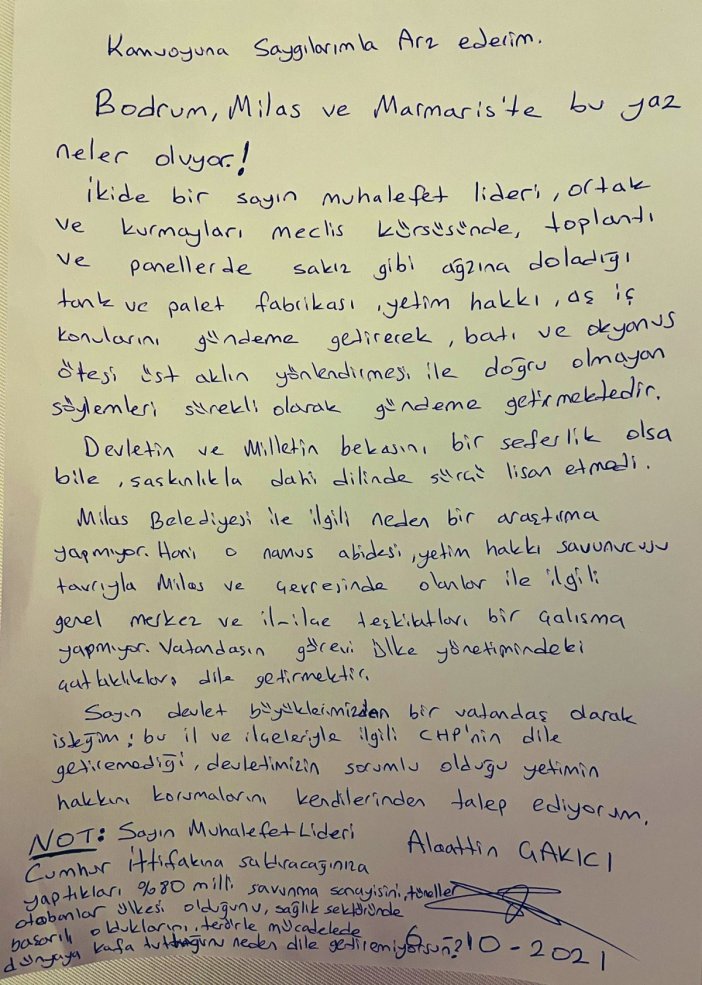 Kamuoyuna Saygılarımla Arz ederim.
Bodrum, Milas ve Marmaris'te bu yaz
neler oluyor.!
İkide bir sayın muhalefet lideri, ortak
ve kurmayları meclis kürsüsünde, toplantı
ve panellerde sakız gibi ağzına doladığı
tank ve palet fabrikası, yetim hakkı, aş iç
konularını gündeme getirecek, batı ve okyanus
ötesi üst aklın yönlendirmesi ile doğru olmayan
söylemleri sürekli olarak gündeme getirmektedir.
Devletin ve Milletin bekasını bir seferlik olsa
bile, şaşkınlıkla dahi dilinde sürcü lisan etmedi.
Milas Belediyesi ile ilgili neden bir araştırma
yapmıyor. Hani o namus abidesi, yetim hakkı savunucusu
tavrıyla Milas ve çevresinde olanlar ile ilgili
genel merkez ve il-ilçe teşkilatları bir çalışma
yapmıyor. Vatandaşın görevi ülke yönetimindeki
çatlaklıkları dile getirmektir.
Sayın devlet büyüklerimizden bir vatandaş olarak
isteğim; bu il ve ilçeleriyle ilgili CHP'nin dile
getiremediği, devletimizin sorumlu olduğu yetimin
hakkını korumalarını kendilerinden talep ediyorum.
NOT: Sayın Muhalefet Lideri
Alaattin ÇAKICI
Cumhur İttifakına saldıracağınıza
yaptıkları %80 milli savunma sanayisini, tüneller
otobanlar ülkesi olduğunu, sağlık sektöründe
başarılı olduklarını, terörle mücadelede
dünyaya kafa tuttuğunu neden dile getiremiyorsun?
6-10-2021